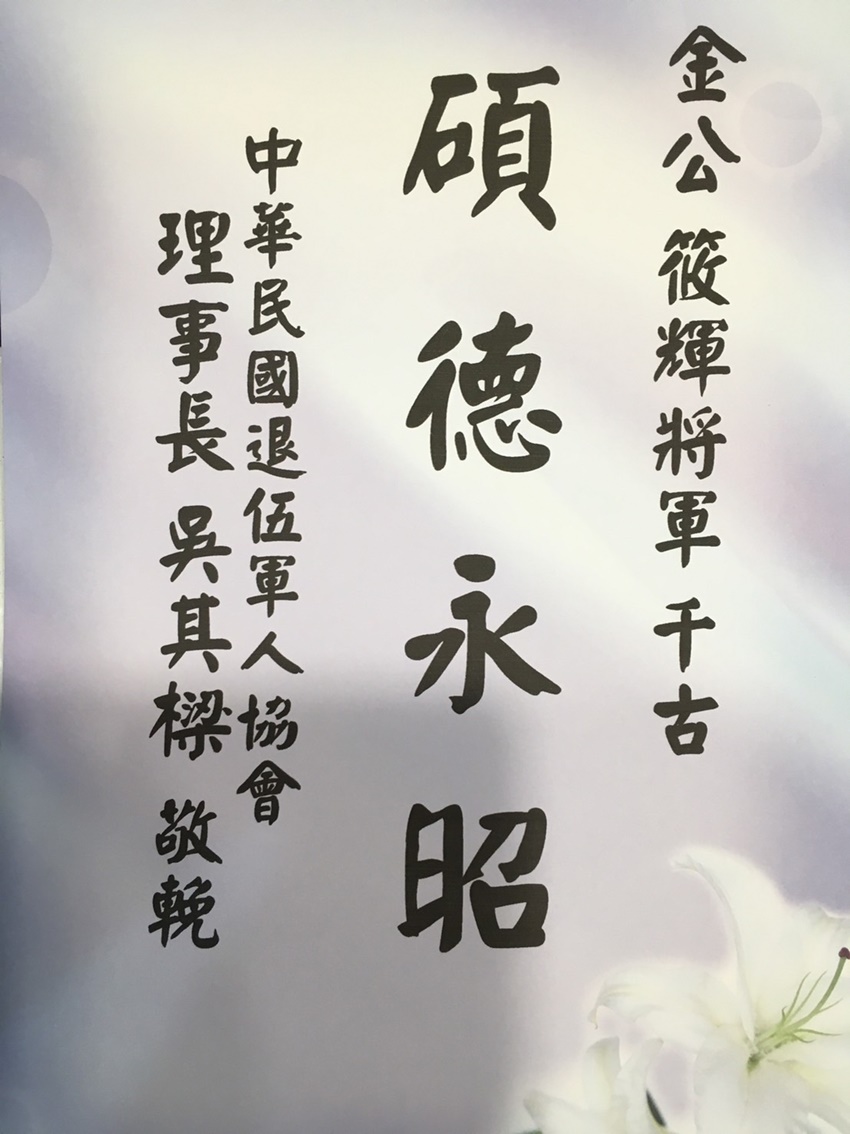 金公 筱輝將軍 千古
碩德永昭
中華民國退伍軍人協會
理事長 吳其樑 敬輓